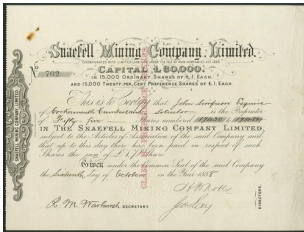 Snaefell Mining Company, Limited.
CAPITAL £60,000.
IN 15,000 ORDINARY SHARES OF £1. EACH.
AND 15,000 TWENTY PER CENT. PREFERENCE SHARES OF £1. EACH
No 702
This is to Certify that John Simpson Esquire
of Cockermouth Cumberland Solicitor is the Proprietor
of Fifty five Shares numbered
IN THE SNAEFELL MINING COMPANY LIMITED,
subject to the Articles of Association of the said Company and
that up to this day there has been paid in respect of such
Shares the sum of
Given under the Common Seal of the said Company
the Sixteenth day of October in the Year 1888
SECRETARY.